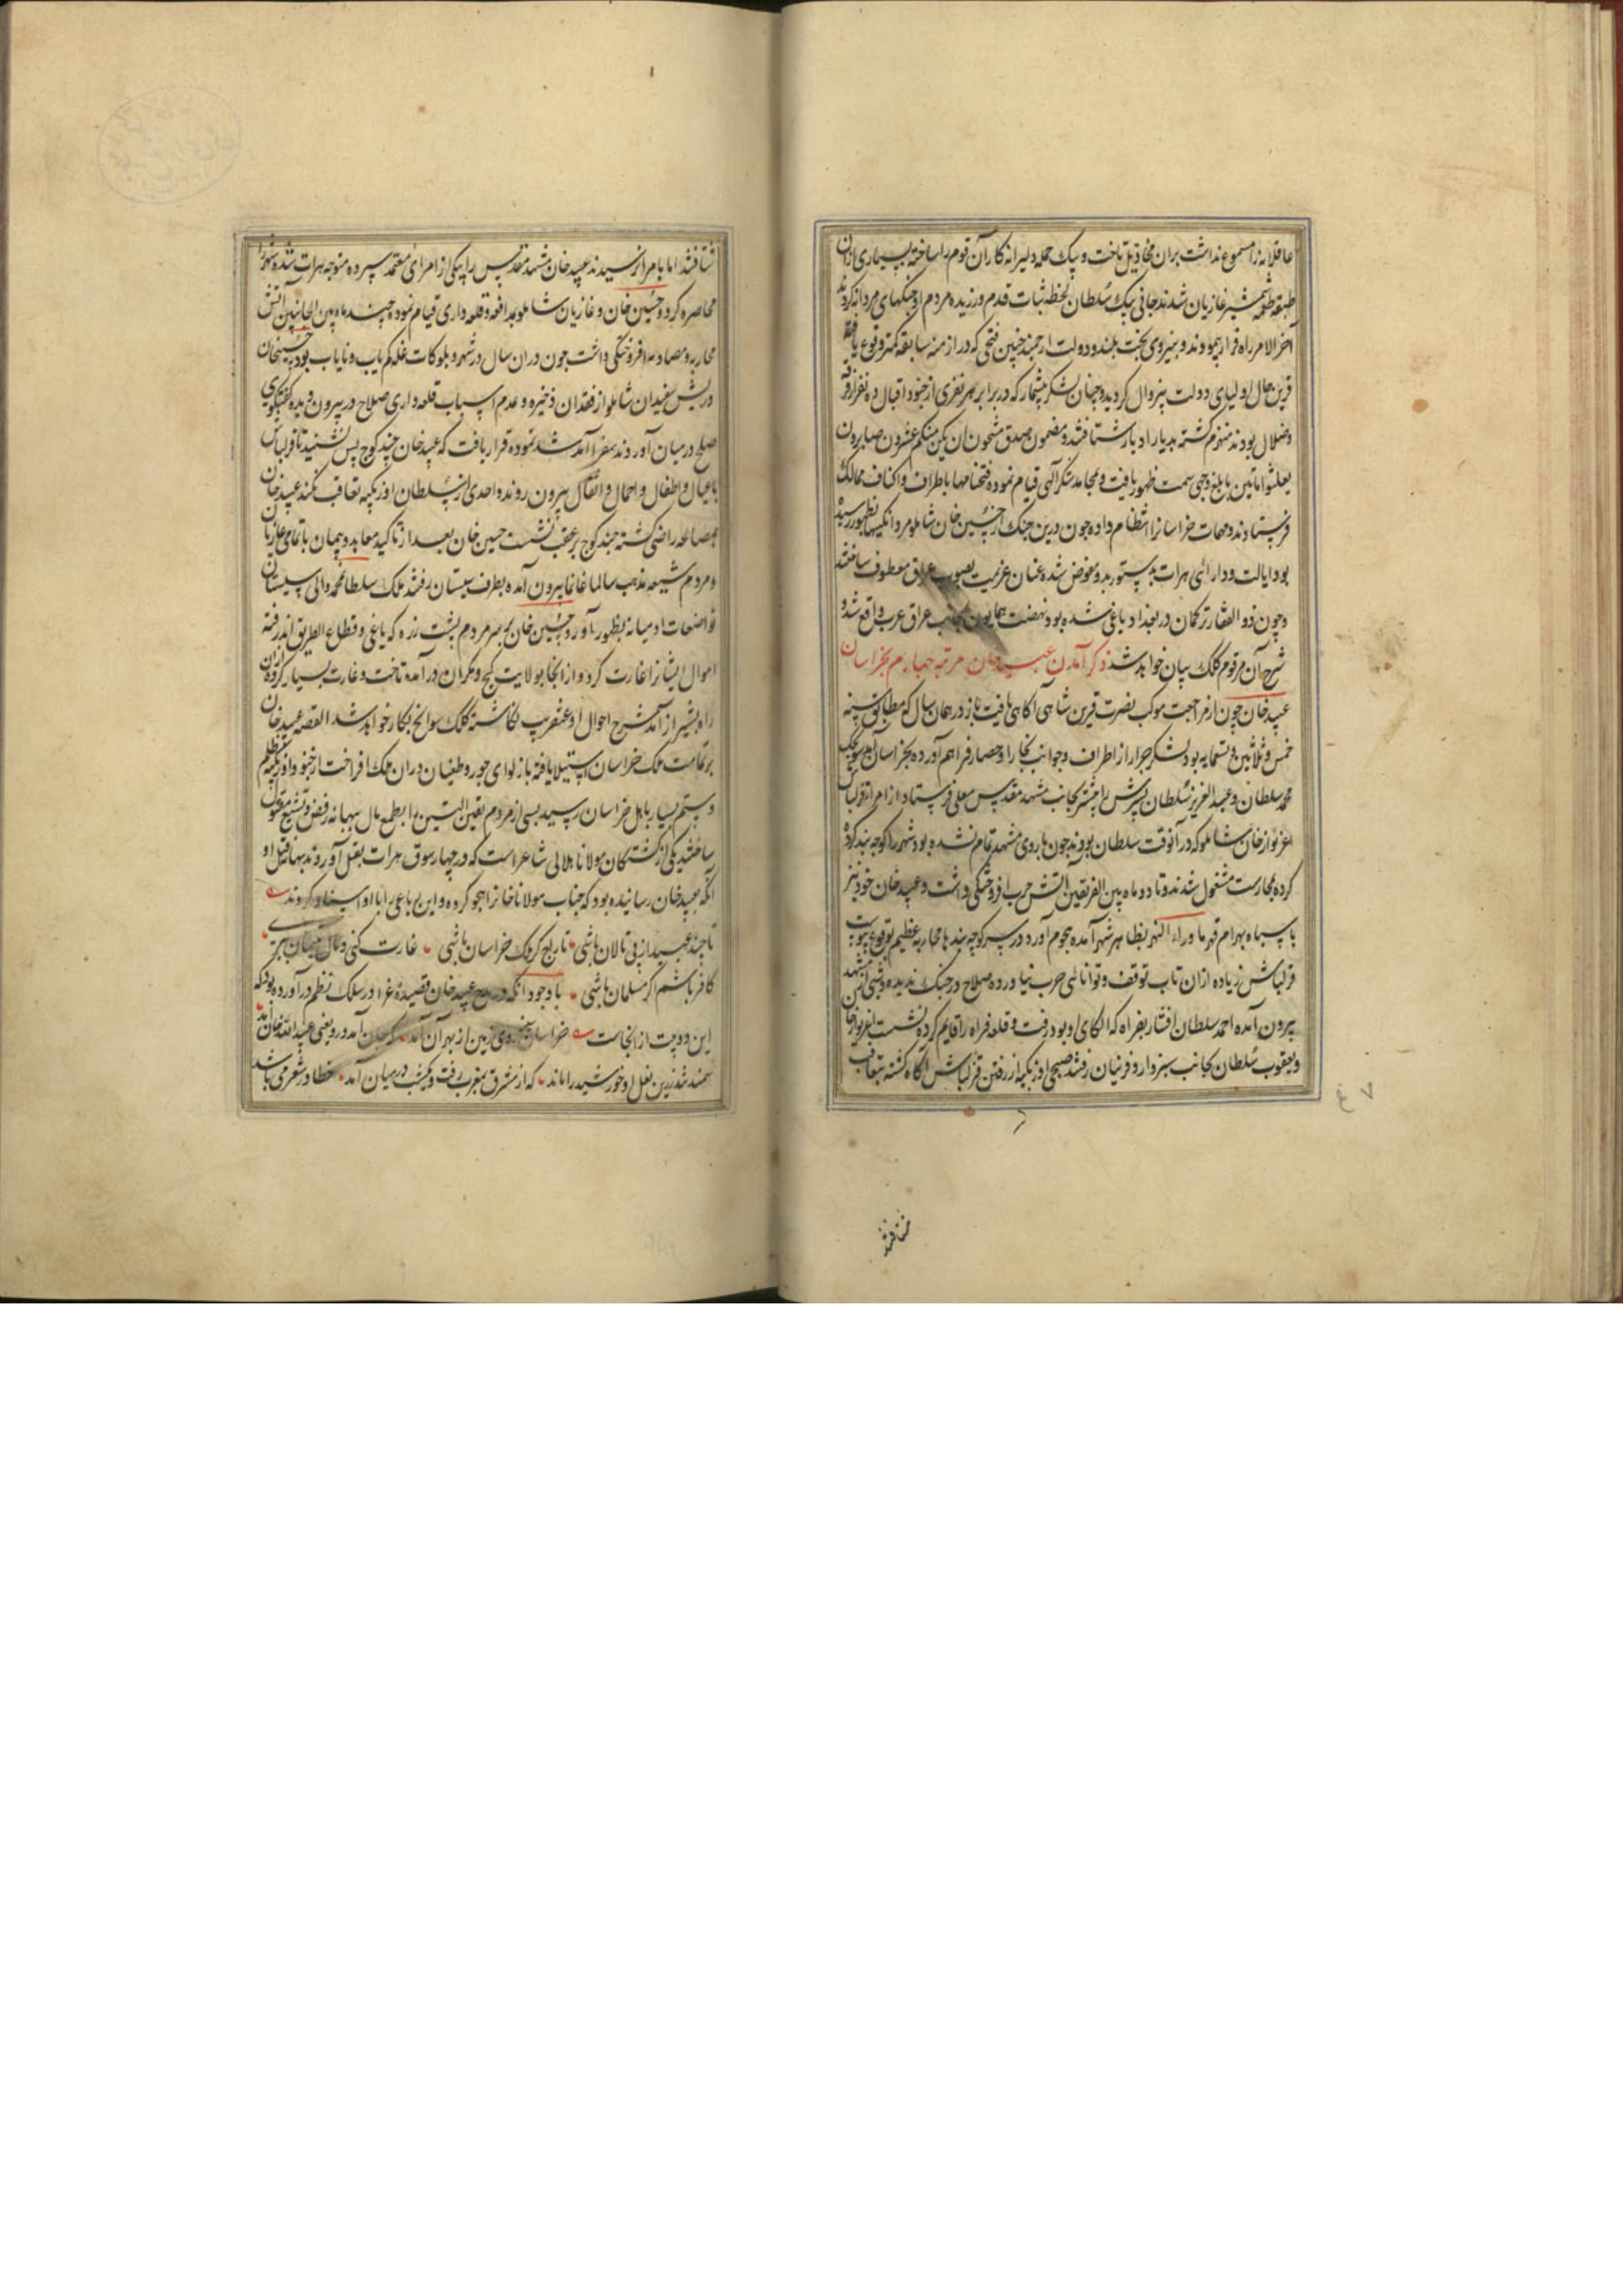 عاقلانه را مسموع نداشت بران مخاذیل تاخت و بیک حمله دلیرانه کار آن قوم را ساخته بسیاری ازان
طبقه طعمه شمشیر غازیان شدند جانی بیک سلطان لحظه ثبات قدم ورزیده مردم او جنگهای مردانه کردند
آخر الامر راه فرار پیمودند و بنیروی بخت بلند و دولت ارجمند چنین فتحی که در ازمنه سابقه کمتر وقوع یافته
قرین حال اولیای دولت بیزوال گردیده و چنان لشکر بیشمار که در برابر هر نفری از جنود اقبال ده نفر از فرقه
وضلال بودند منهزم گشته بدیار ادبار شتافتند و مضمون صدق مشحون ان یکن منکم عشرون صابرون
یغلبوا مأتین بابلغ وجهی سمت ظهور یافت و بمحامد شکر الهی قیام نموده فتحنامها باطراف و اکناف ممالک
فرستادند و مهمات خراسانرا انتظام داده چون درین جنک از حسین خان شاملو مردانگیها بظهور رسیده
بود ایالت و دارائی هرات بدستور بدو مفوض شده عنان عزیمت بصوب عراق معطوف ساختند
و چون ذوالفقار ترکمان در بغداد یاغی شده بود نهضت همایون بجانب عراق عرب واقع شد و
شرح آن مرقوم کلک بیان خواهد شد ذکر آمدن عبید خان مرتبه چهارم بخراسان
عبید خان چون از مراجعت موکب نصرت قرین شاهی آگاهی یافت باز در همان سال که مطابق سنه
خمس و ثلاثین و تسعمایه بود لشکر جرار از اطراف و جوانب بخارا و حصار فراهم آورده بخراسان آمد سونجک
محمد سلطان و عبد العزیز سلطان پسرش را پیشتر بجانب مشهد مقدس معلی فرستاد از امرا قزلباش
اغزیوار خان شاملو که در آنوقت سلطان بودند چون باروی مشهد تمام نشده بود شهر را کوچه بند کرده
کرده بمحارست مشغول شدند و تا دو ماه بین الفریقین آتش حرب افروختگی داشت و عبید خان خود نیز
با سپاه بهرام قهر ماوراء النهر بظاهر شهر آمده هجوم آورد و در سر کوچه بندها محاربه عظیم بوقوع پیوست
قزلباش زیاده ازان تاب توقف و توانائی حرب نیاورده صلاح در جنک ندیده و شبی از مشهد
بیرون آمده احمد سلطان افشار بفراه که الکای او بود رفت و قلعه فراه را قایم کرده نشست اغزیوار خان
و یعقوب سلطان بجانب سبزوار و فرنیان رفتند صبحی اوزبکیه از رفتن قزلباش آگاه گشته بتعاقب
شتافتند
شتافتند اما بامرا نرسیدند عبید خان مشهد مقدس را بیکی از امرای معتمد سپرده متوجه هرات شده شهر را
محاصره کرد و حسین خان و غازیان شاملو بمدافعه و قلعه داری قیام نموده چند ماه بین الجانبین آتش
محاربه و مصادمه افروختگی داشت چون دران سال در شهر و بلوکات غله کمیاب و نایاب بود حسینخان
و ریش سفیدان شاملو از فقدان ذخیره و عدم اسباب قلعه داری صلاح در بیرون دیده گفتگوی
صلح در میان آوردند سفرا آمد شد نموده قرار یافت که عبید خان چند کوچ پس نشیند تا قزلباش
با عیال و اطفال و احمال و اثقال بیرون روند و احدی از سلطان اوزبکیه تعاقب نکند عبید خان
بمصالحه راضی گشته چند کوچ بر عقب نشست حسین خان بعد از تاکید معاهد و پیمان با تمامی غازیان
و مردم شیعه مذهب سالما غانما بیرون آمده بطرف سیستان رفتند ملک سلطان محمود والی سیستان
تواضعات او میانه بظهور آورد و حسین خان بر سر مردم پشت زره که یاغی و قطاع الطریق اند رفته
اموال ایشانرا غارت کرد و از انجا بولایت کیج و مکران در آمده تاخت و غارت بسیار کرده ازان
راه بشیراز آمد شرح احوال او عنقریب نکاشته کلک سوانح نگار خواهد شد القصه عبید خان
بر تمامت ملک خراسان استیلا یافته باز لوای جور و طغیان دران ملک افراخت از جنود اوزبکیه ظلم
و ستم بسیار باهل خراسان رسید بسی از مردم یقین التسنن را بطمع مال ببهانه رفض و تشیع مقتول
ساختند یکی از کشتگان مولانا هلالی شاعر است که در چهار سوق هرات بقتل آوردند بهانه قتل او
آنکه بعبید خان رسانیده بود که جناب مولانا خانرا هجو کرده و این رباعی را باو اسناد کردند
تا چند عبید از پی تالان باشی تاراج گر ملک خراسان باشی غارت کنی و مال یتیمان ببری
کافر باشم اگر مسلمان باشی با وجود آنکه در مدح عبید خان قصیده غرا در سلک نظم در آورده بود که
این دو بیت از انجاست خراسان سینه روی زمین از بهر آن آمد که جان آمد درو یعنی عبید الله خان آمد
سمند تند زرین نعل او خورشید را ماند که از مشرق بمغرب رفت و یکشب در میان آمد خطا در شعر می باشد